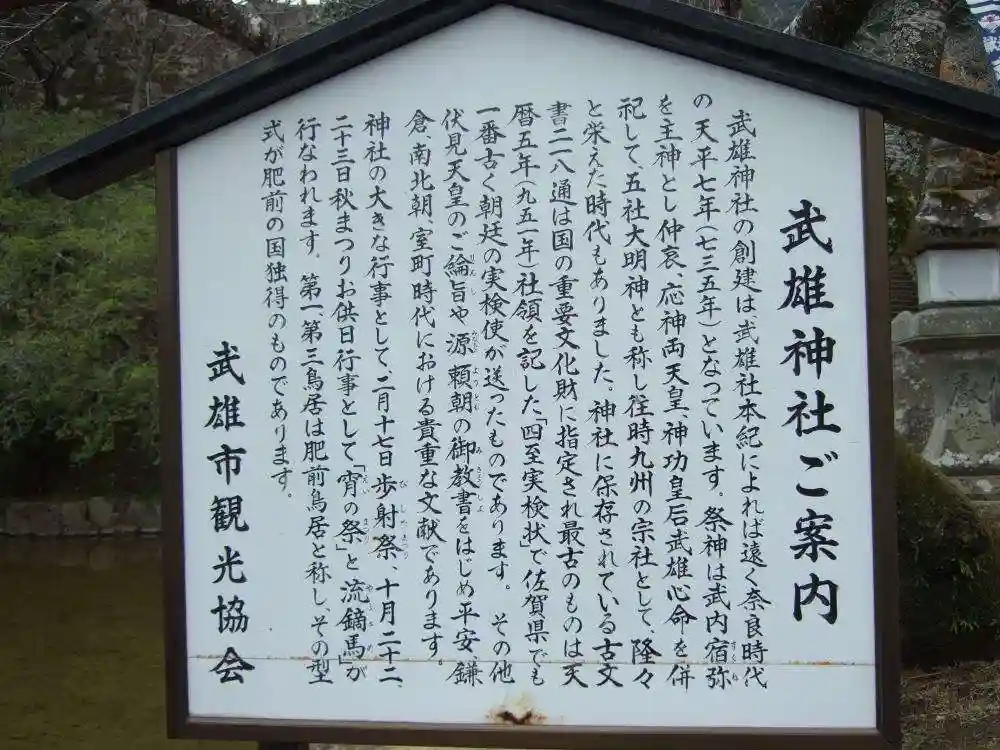 武雄神社ご案内
武雄神社の創建は、武雄社本紀によれば遠く奈良時代
の天平七年(七三五年)となつています。祭神は武内宿弥
を主神とし仲哀、応神両天皇、神功皇后武雄心命を併
祀して、五社大明神とも称し往時九州の宗社として、隆々
と栄えた時代もありました、神社に保存されている古文
書二二八通は国の重要文化財に指定され最古のものは天
暦五年(九五一年)社領を記した「四至実検状」で佐賀県でも
一番古く朝廷の実検使が送ったものであります。その他
伏見天皇のご綸旨や源頼朝の御教書をはじめ平安、鎌
倉、南北朝、室町時代における貴重な文献であります。
神社の大きな行事として、二月十七日歩射祭、十月二十二、
二十三日秋まつりお供日行事として「宵の祭」と流鏑馬」が
行なわれます。第一第三鳥居は肥前鳥居と称し、その型
式が肥前の国独得のものであります。
武雄市観光協会